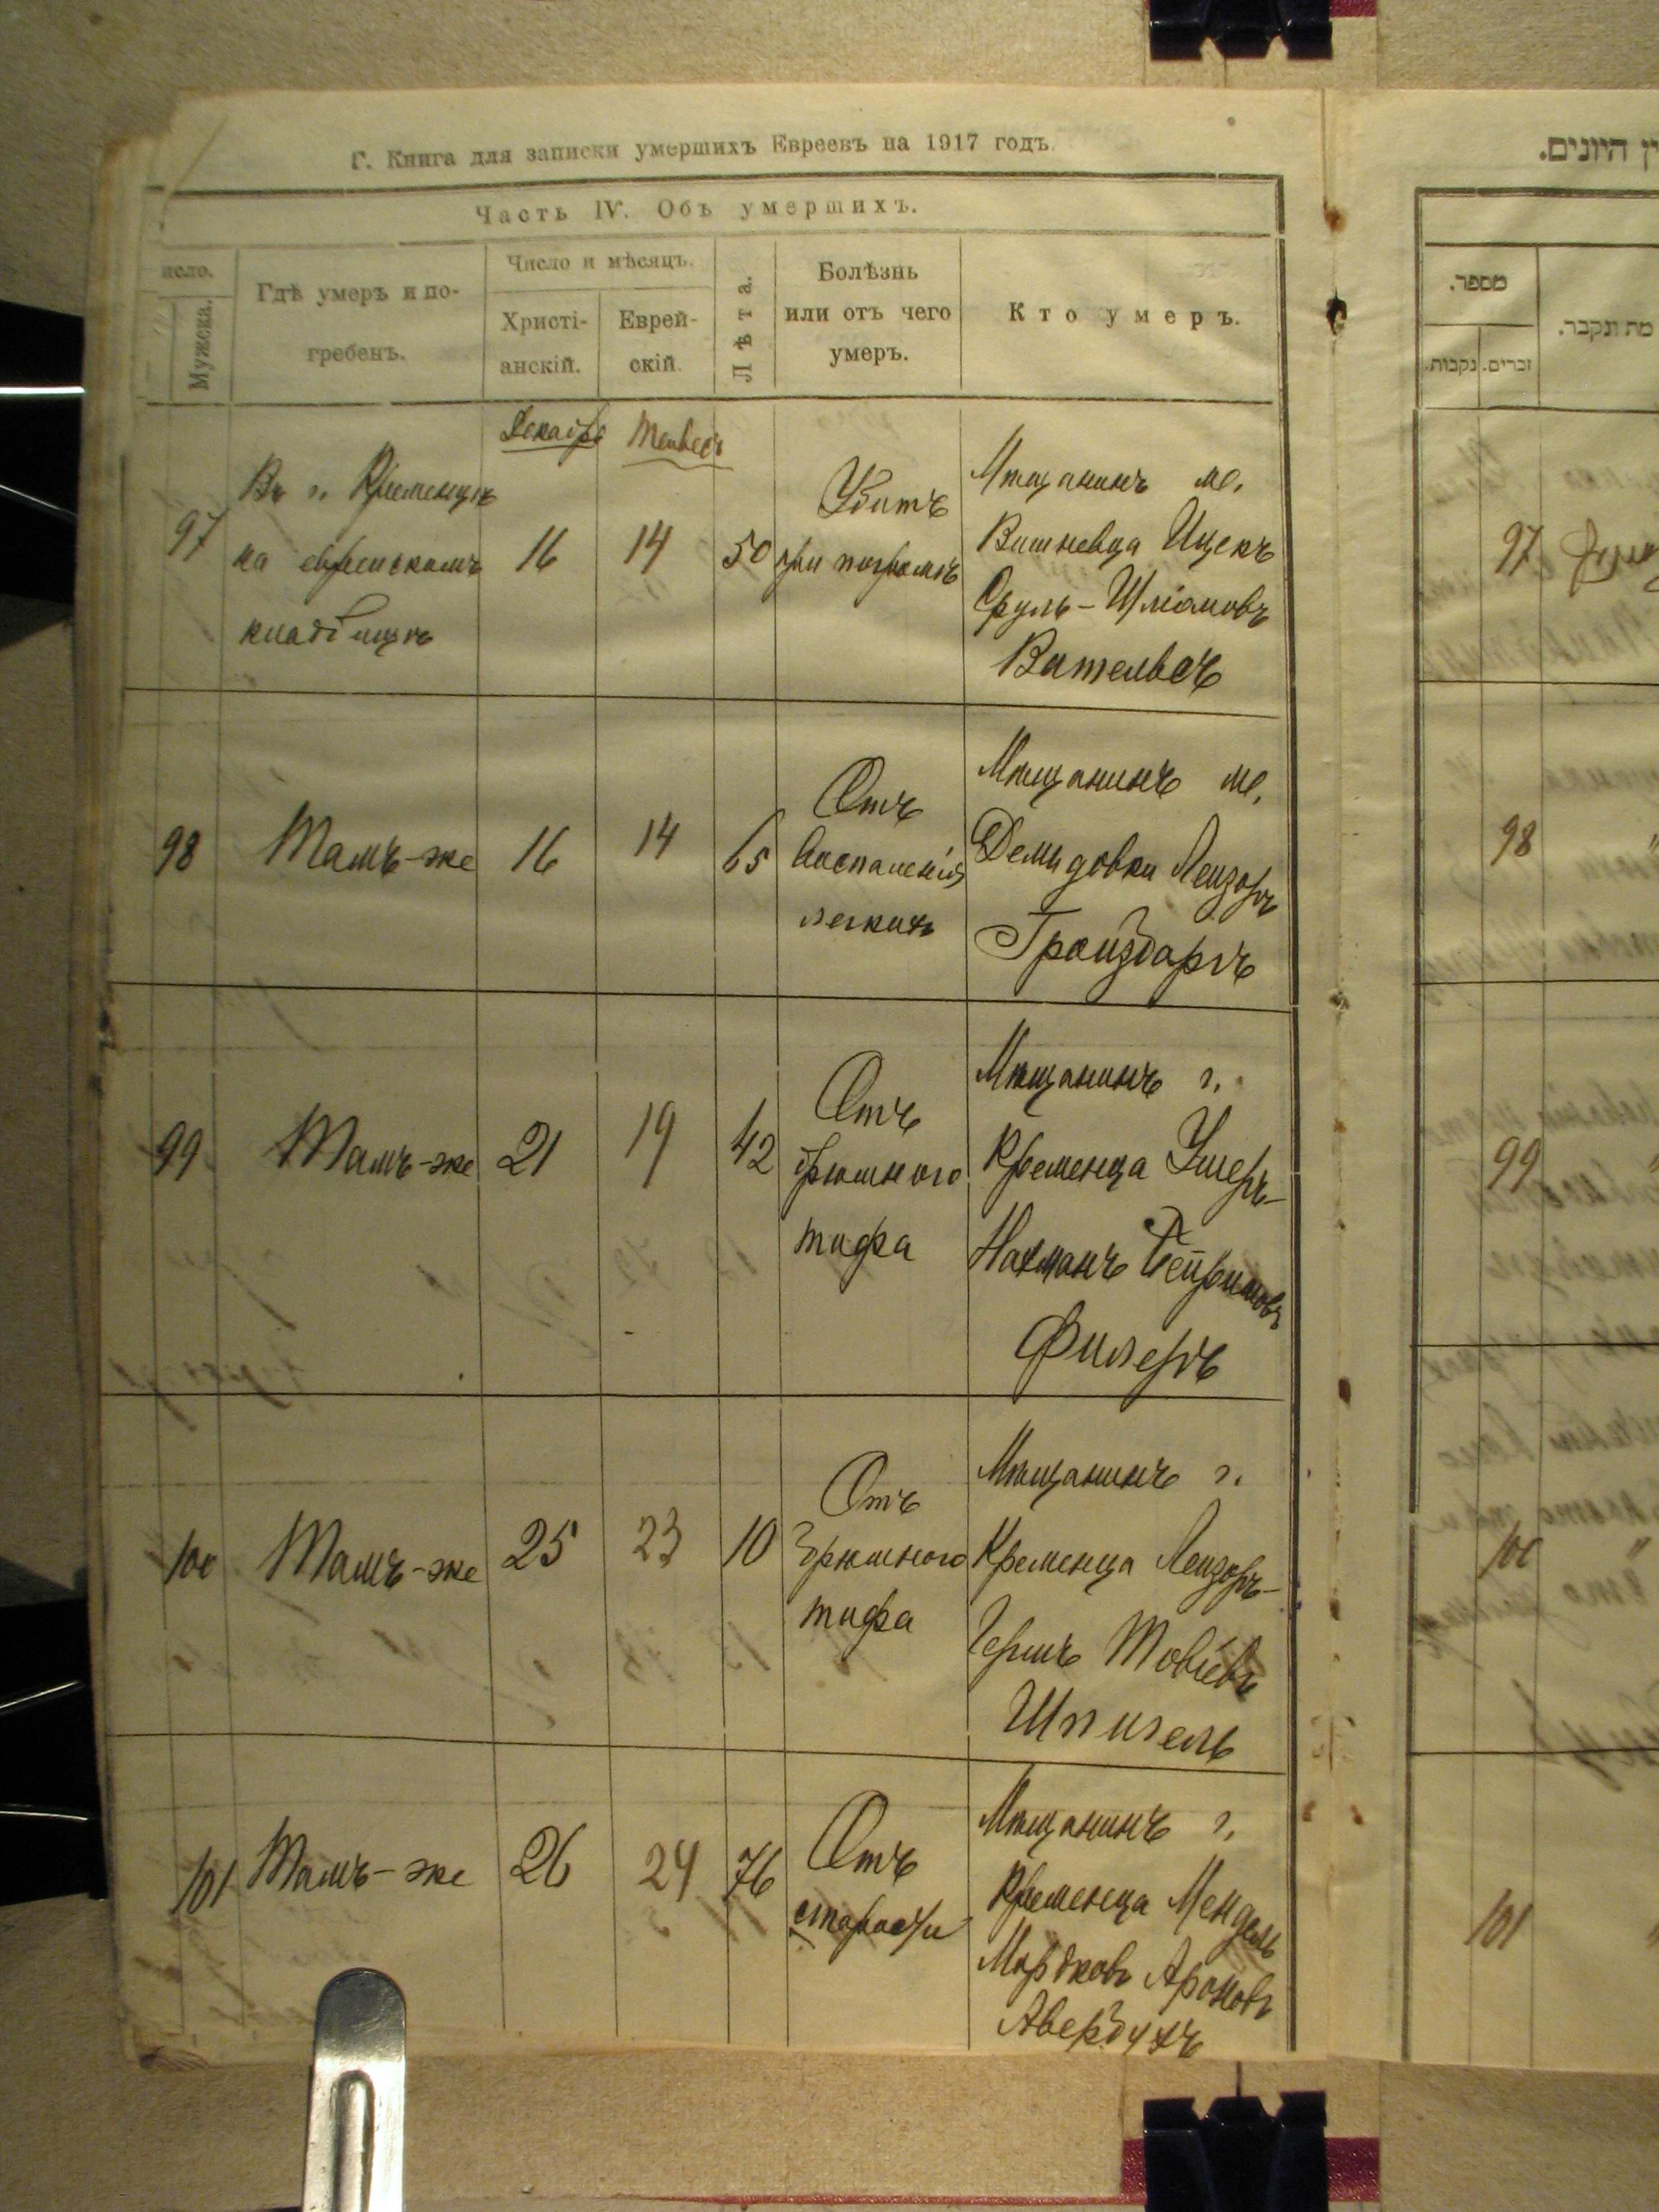 Г. Книга для записки умершихъ Евреевъ на 1917 годъ.
Часть IV. Объ умершихъ.
исло.
Мужеска.
Гдѣ умеръ и по-
гребенъ.
Число и мѣсяцъ.
Христі-
анскій.
Еврей-
скій.
Лѣта.
Болѣзнь
или отъ чего
умеръ.
Кто умеръ.
Декабрь
97
Въ г. Кременцѣ
на еврейскомъ
кладбищѣ
16
14
50
Убитъ
при погромѣ
Мѣщанинъ м.
Вишневца Ицекъ
Сруль-Шліомовъ
Вательвеъ
98
Тамъ-же
16
14
65
Отъ
воспаленія
легкихъ
Мѣщанинъ м.
Демидовки Лейзоръ
Гройзбаръ
99
Тамъ-же
21
19
42
Отъ
брюшного
тифа
Мѣщанинъ г.
Кременца Ушеръ-
Нахманъ
Фишеръ
100
Тамъ-же
25
23
10
Отъ
брюшного
тифа
Мѣщанинъ г.
Кременца Лейзоръ-
Гершъ Товіевъ
Шпигель
101
Тамъ-же
26
24
76
Отъ
старости
Мѣщанинъ г.
Кременца Мендель
Мордковъ Ароновъ
Авербухъ
ין היונים.
מספר.
זכרים.
נקבות.
מת ונקבר.
97
98
99
100
101